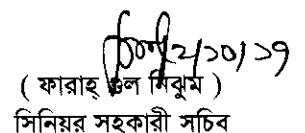 ২/১০/১৭
( ফারাহ্ গুল নিঝুম )
সিনিয়র সহকারী সচিব